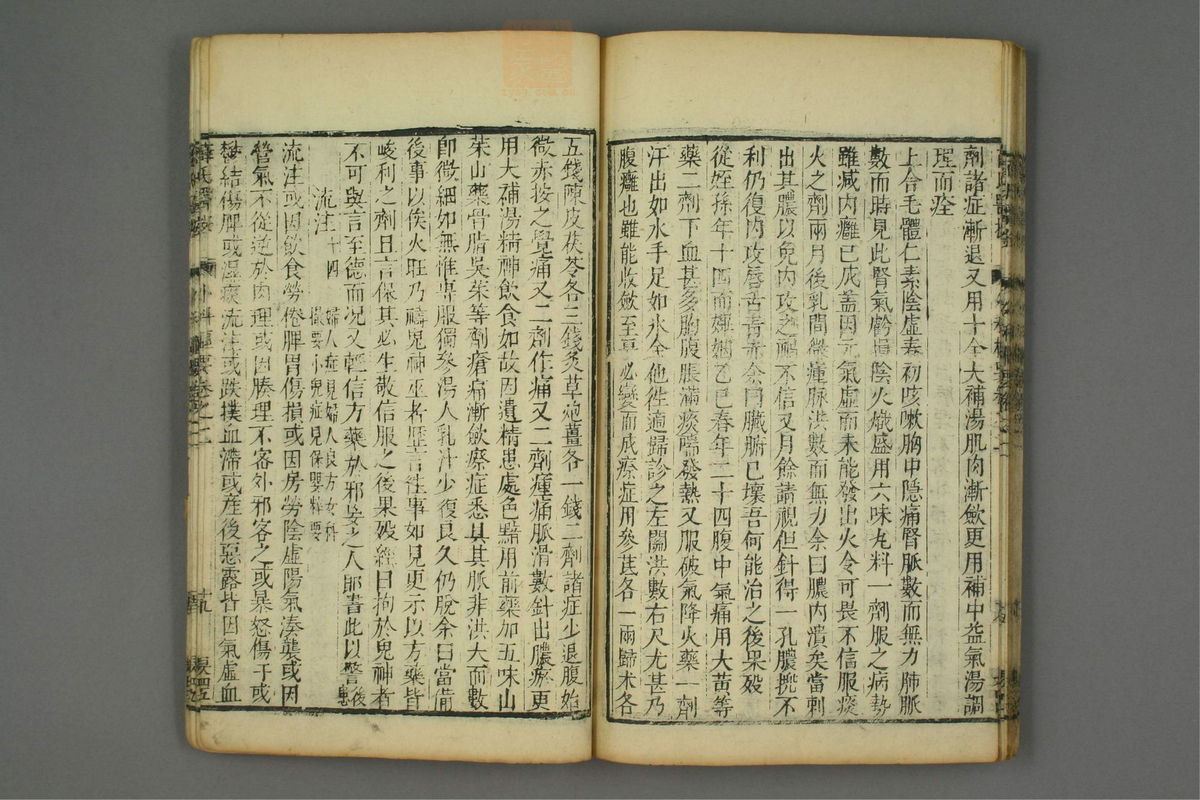 劑諸症漸退又用十全大補湯肌肉漸斂更用補中益氣湯調
理而痊
上合毛體仁素陰虛春初咳嗽胸中隱痛腎脈數而無力肺脈
數而時見此腎氣虧損陰火熾盛用六味丸料一劑服之病勢
雖減內癰已成蓋因元氣虛而未能發出火令可畏不信服痰
火之劑兩月後乳間微瘇脉洪數而無力余曰膿內潰矣當刺
出其膿以免內攻之禍不信又月餘請視但針得一孔膿攙不
利仍復內攻唇舌青赤余曰臟腑已壞吾何能治之後果歿
從姪孫年十四而婚姻乙巳春年二十四腹中氣痛用大黃等
藥二劑下血甚多胸腹脹滿痰喘發熱又服破氣降火藥一劑
汗出如水手足如氷全他徃適歸診之左關洪數右尺尤甚乃
腹癰也雖能收斂至夏必變而成瘵症用參芪各一兩歸术各
五錢陳皮茯苓各三錢炙草炮薑各一錢二劑諸症少退腹始
微赤按之覺痛又二劑作痛又二劑瘇痛脈滑數針出膿瘀更
用大補湯精神飲食如故因遺精患處色黯用前藥加五味山
茱山藥骨脂吳茱等劑瘡痛漸斂瘵症悉具其脈非洪大而數
卽微細如無惟專服獨參湯人乳汁少復良久仍脫余曰當備
後事以俟火旺乃禱鬼神巫者歷言徃事如見更示以方藥皆
峻利之劑且言保其必生敬信服之後果歿經曰拘於鬼神者
不可與言至德而況又輕信方藥於邪妄之人耶書此以警後患
流注十四
婦人症見婦人良方女科
撮要小兒症見保嬰粹要
流注或因飲食勞倦脾胃傷損或因房勞陰虛陽氣湊襲或因
營氣不從逆於肉理或因腠理不密外邪客之或暴怒傷于或
鬱結傷脾或濕痰流注或跌撲血滯或產後惡露皆因氣虛血